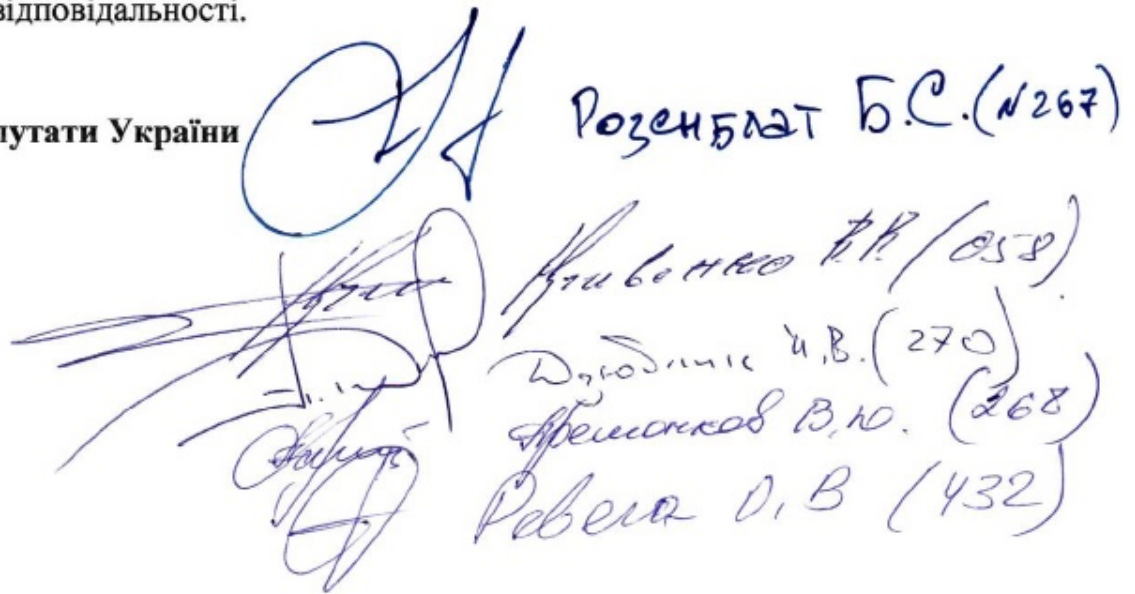 відповідальності.
путати України
Розенблат Б.С. (№267)
Кривенко В.В. (058)
Дзюблик П.В. (270)
Кремонков В.Ю. (268)
Ревега О.В (432)